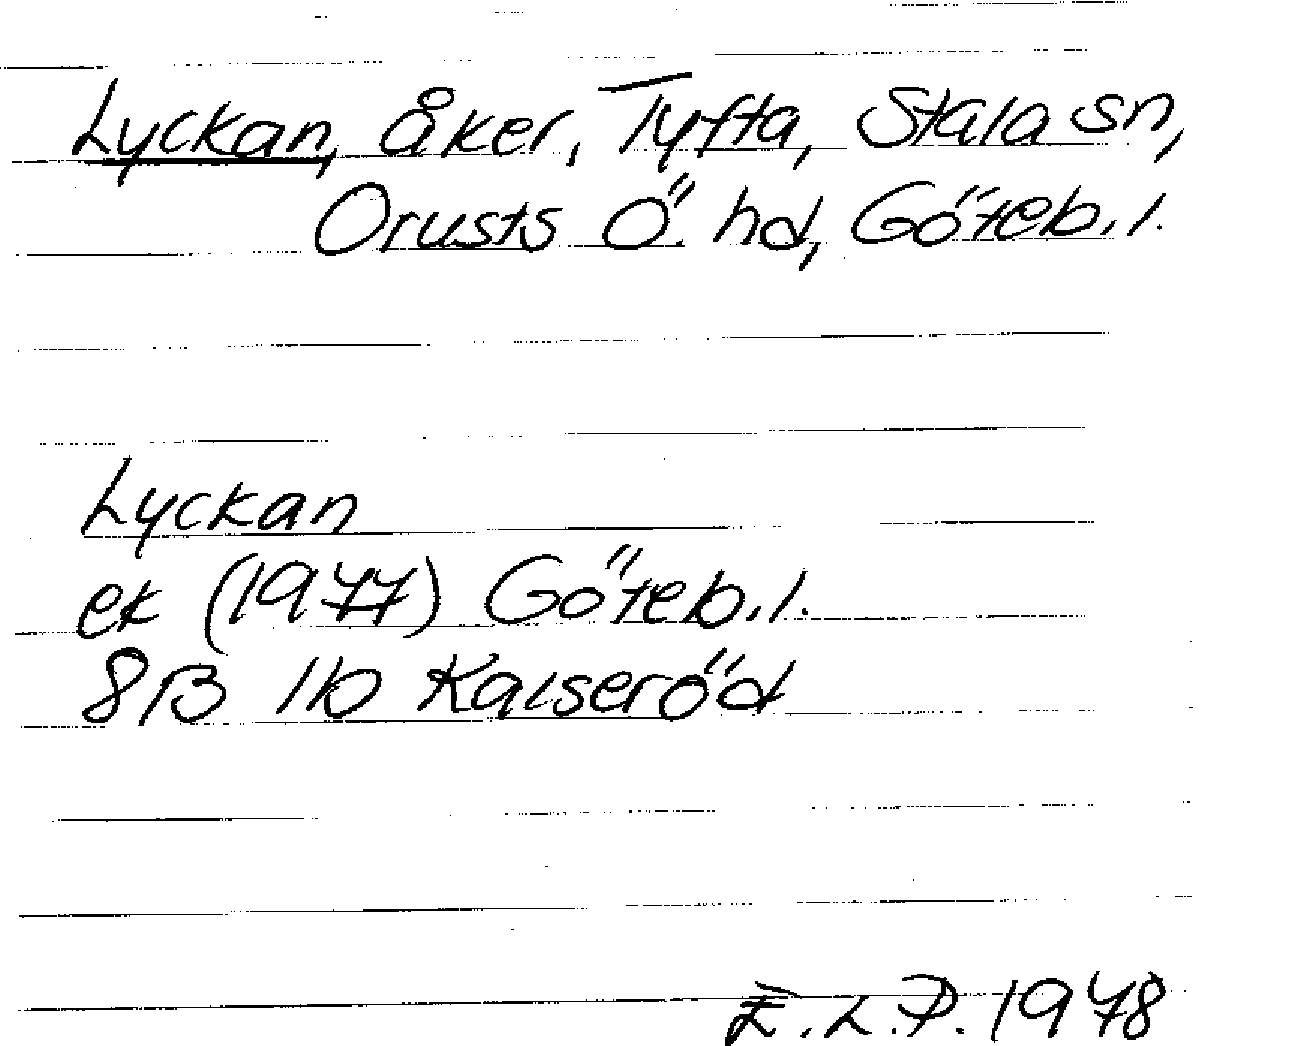 Lyckan, åker, Tyfta, Stala sn,
Orusts Ö. hd, Göteb. l.
Lyckan
ek (1977) Göteb. l.
8B 1b Kalseröd
E.L.P. 1978